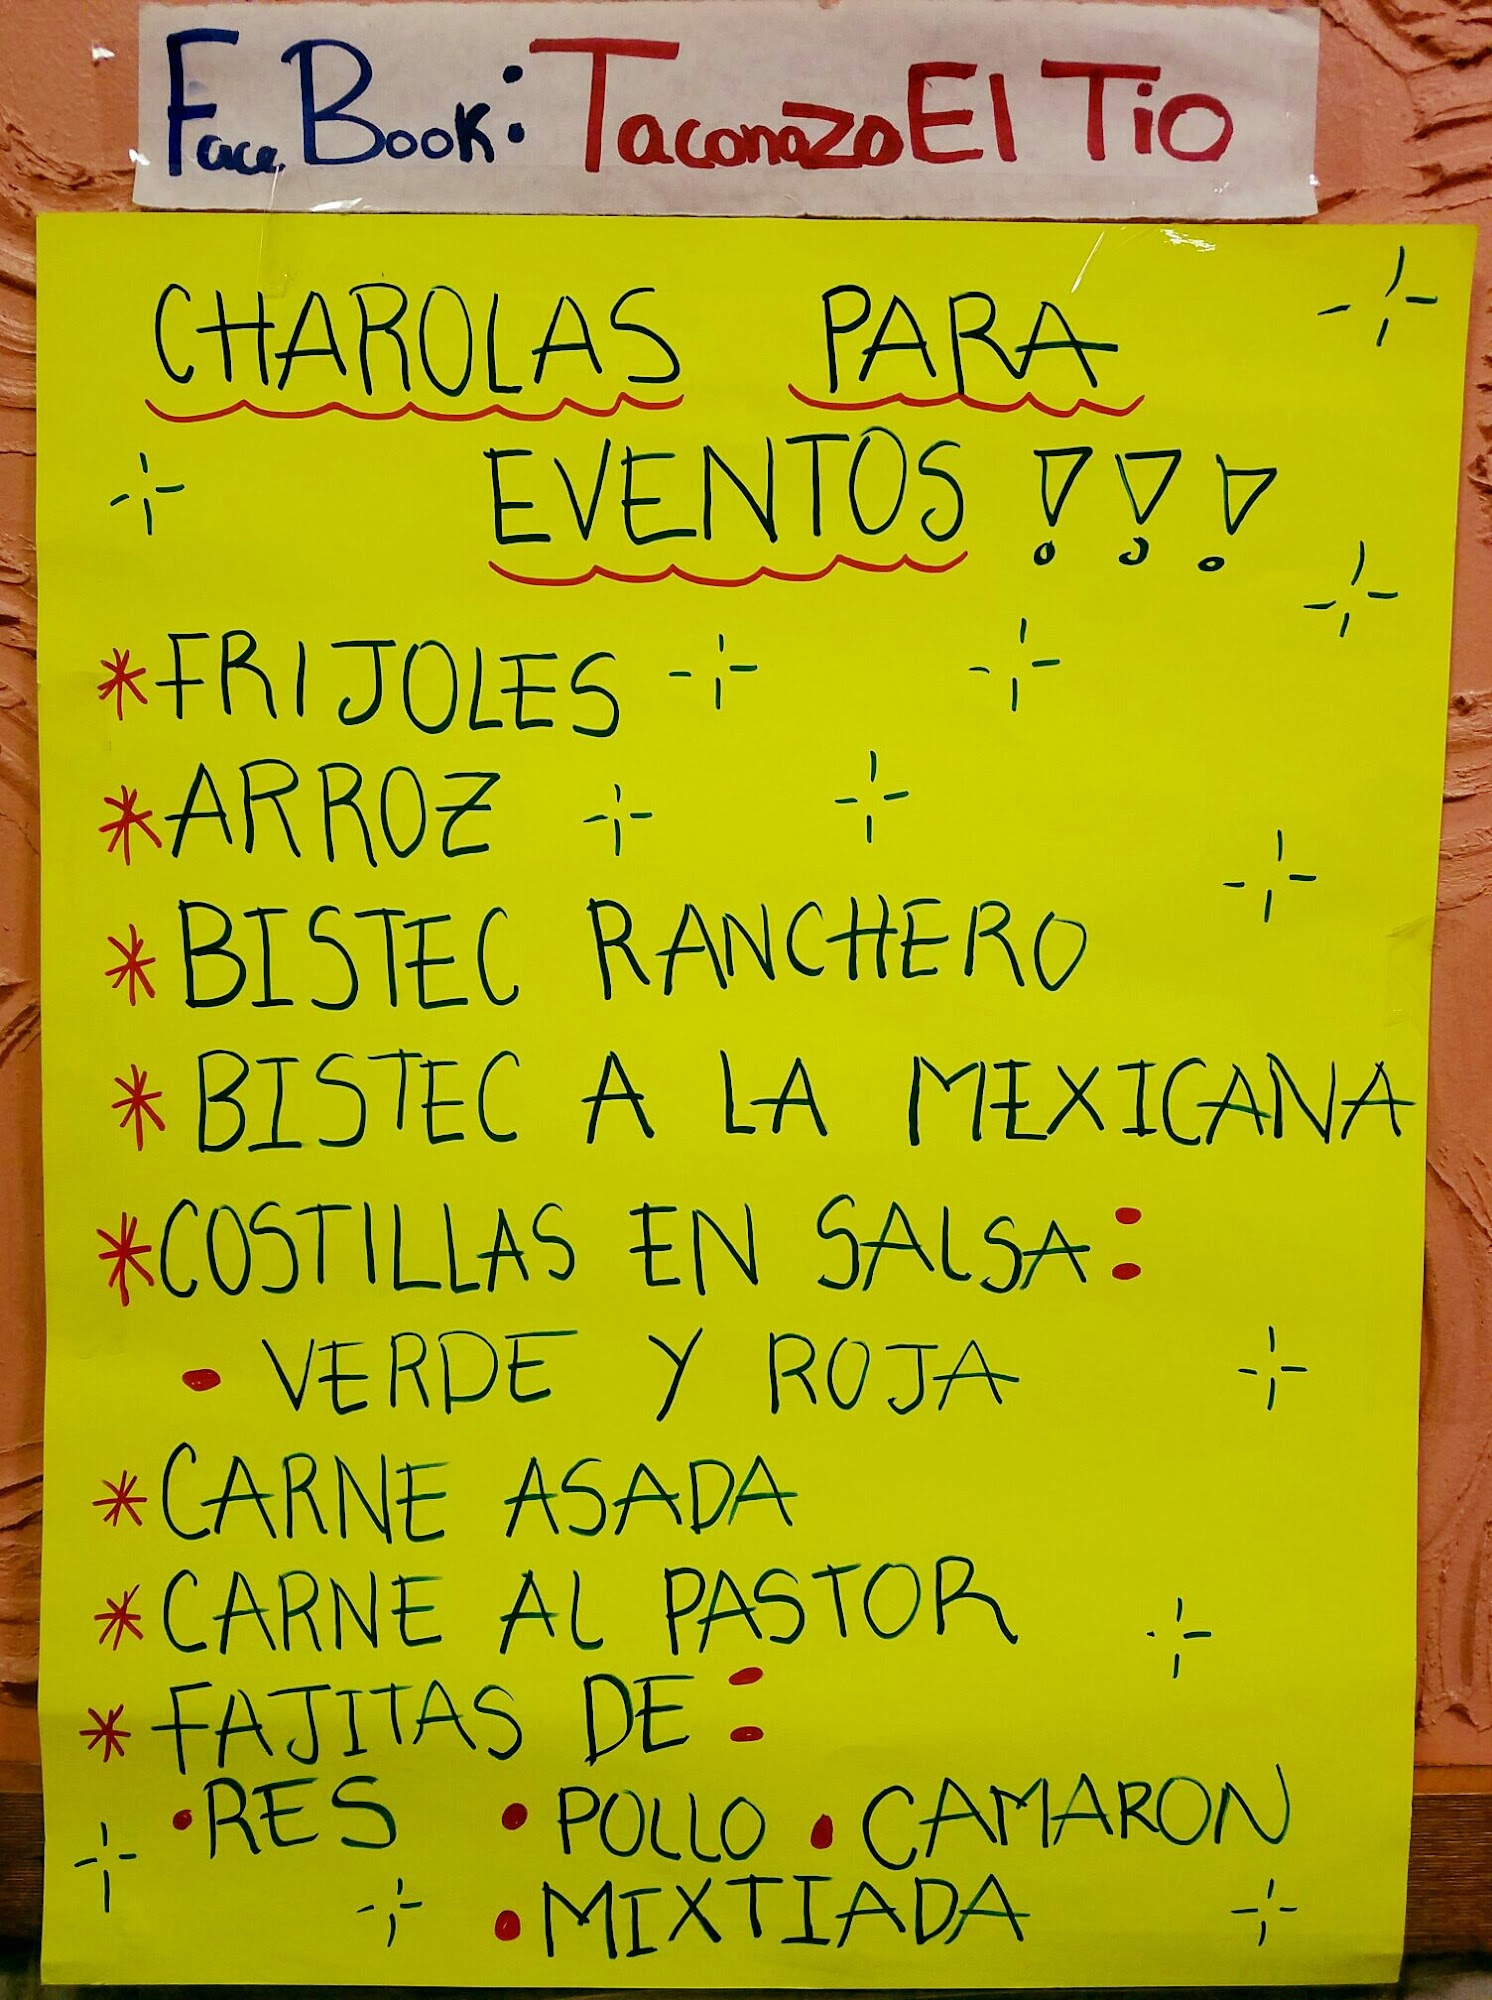 FaceBook: Taconazo El Tio
CHAROLAS PARA
EVENTOS !!!
* FRIJOLES
* ARROZ
* BISTEC RANCHERO
* BISTEC A LA MEXICANA
* COSTILLAS EN SALSA:
• VERDE Y ROJA
* CARNE ASADA
* CARNE AL PASTOR
* FAJITAS DE:
• RES • POLLO • CAMARON
• MIXTIADA